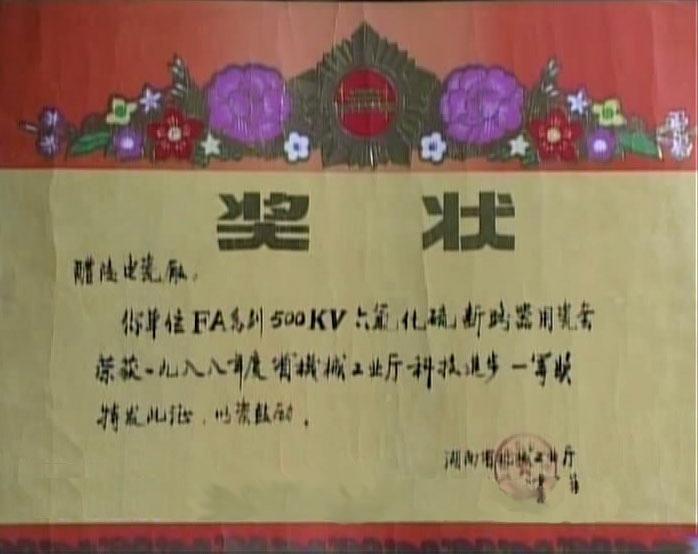 奖状
醴陵电瓷厂:
你单位FA系列500KV六氟化硫断路器用瓷套
荣获一九八八年度省机械工业厅科技进步一等奖
特发此证,以资鼓励。
湖南省机械工业厅